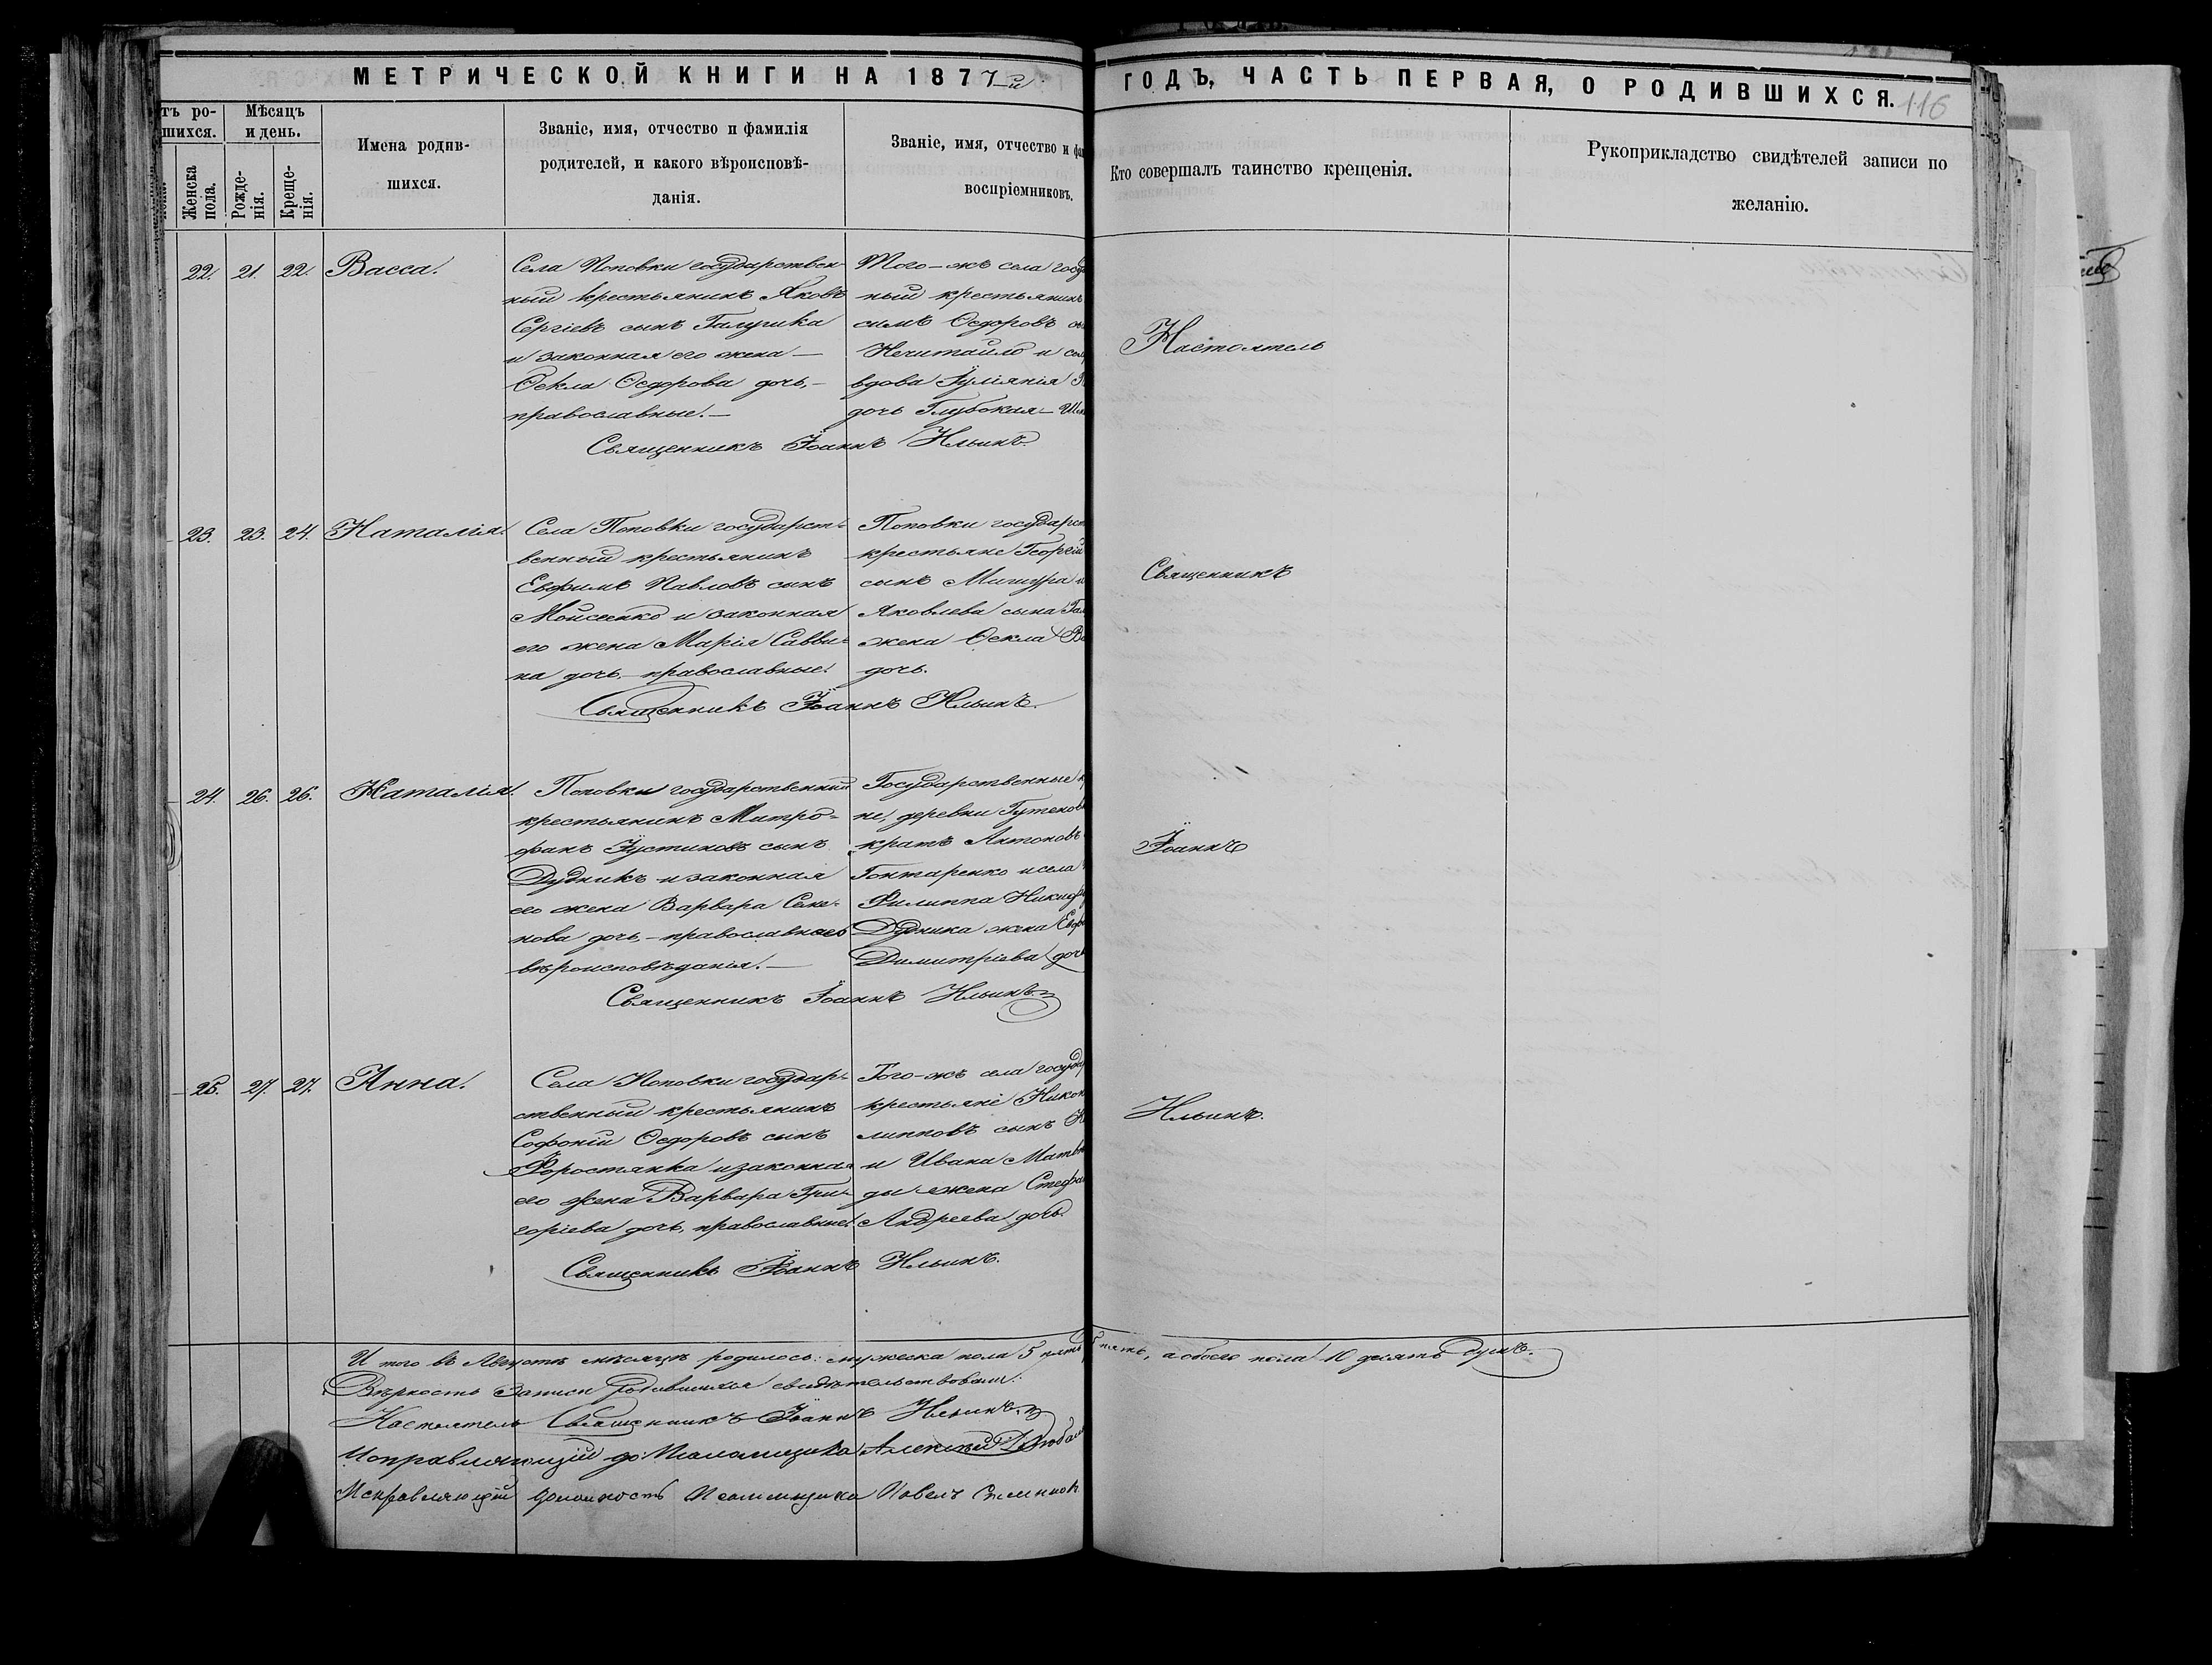 МЕТРИЧЕСКОЙ КНИГИ НА 1877-й
ГОДЪ, ЧАСТЬ ПЕРВАЯ, О РОДИВШИХСЯ.
116
тъ ро-
шихся.
Мѣсяцъ
и день.
Женска
пола.
Рожде-
нія.
Креще-
нія.
Имена родив-
шихся.
Званіе, имя, отчество и фамилія
родителей, и какого вѣроисповѣ-
данія.
Званіе, имя, отчество и фа
воспріемниковъ.
Кто совершалъ таинство крещенія.
Рукоприкладство свидѣтелей записи по
желанію.
22. 21. 22. Васса.
Села Поповки государствен-
ный крестьянинъ Яковъ
Сергіевъ сынъ Галушка
и законная его жена —
Ѳекла Ѳедорова дочь, —
православные. —
Того-жъ села госу
ный крестьянинъ
симъ Ѳедоровъ
Нечитайло и
вдова Іуліянія
дочь Глубокая —
Священникъ Іоаннъ Ильинъ.
23. 23. 24. Наталія.
Села Поповки государст-
венный крестьянинъ
Евфимъ Павловъ сынъ
Мойсеенко и законная
его жена Марія Савви-
на дочь, православные.
Поповки государст
крестьяне Георгій
сынъ Мишура и
Яковлева сына Гал
жена Ѳекла Ва
дочь.
Священникъ Іоаннъ Ильинъ.
24. 26. 26. Наталія.
Поповки государственный
крестьянинъ Митро-
фанъ Іустиновъ сынъ
Дудникъ и законная
его жена Варвара Семе-
нова дочь, — православнаго
вѣроисповѣданія. —
Государственные к
не, деревни Гутенов
кратъ Антоновъ
Гонтаренко и села
Филиппа Никиф
Дудника жена Евф
Димитріева дочь
Священникъ Іоаннъ Ильинъ.
25. 27. 27. Анна.
Села Поповки государ-
ственный крестьянинъ
Софоній Ѳедоровъ сынъ
Форостянка и законная
его жена Варвара Гри-
горіева дочь, православные.
Того-жъ села госуда
крестьяне Никон
липповъ сынъ
и Ивана Матвѣ
ды жена Стефа
Андреева дочь.
Священникъ Іоаннъ Ильинъ.
Настоятель
Священникъ
Іоаннъ
Ильинъ.
И того въ Августѣ мѣсяцѣ родилось: мужеска пола 5 пять
пять, а обоего пола 10 десять душъ.
Вѣрность записи родившихся свидѣтельствовали:
Настоятель Священникъ Іоаннъ Ильинъ.
Исправляющій до: Псаломщика Алексѣй
Исправляющій должность Псаломщика Павелъ